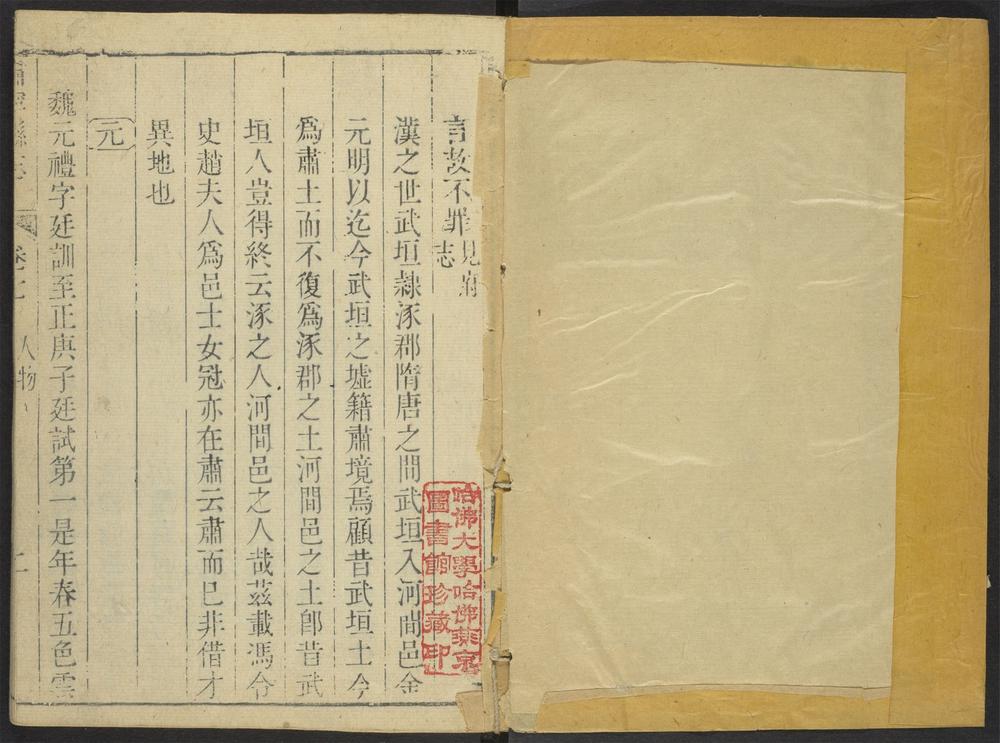 言故不罪見府志
漢之世武垣隸涿郡隋唐之間武垣入河間邑金
元明以迄今武垣之墟籍肅境焉顧昔武垣土今
爲肅土而不復爲涿郡之土河間邑之土卽昔武
垣人豈得終云涿之人河間邑之人哉茲載馮令
史趙夫人爲邑士女冠亦在肅云肅而已非借才
異地也
元
魏元禮字廷訓至正庚子廷試第一是年春五色雲
肅寧縣志 卷之 人物
哈佛大學哈佛燕京
圖書館珍藏印